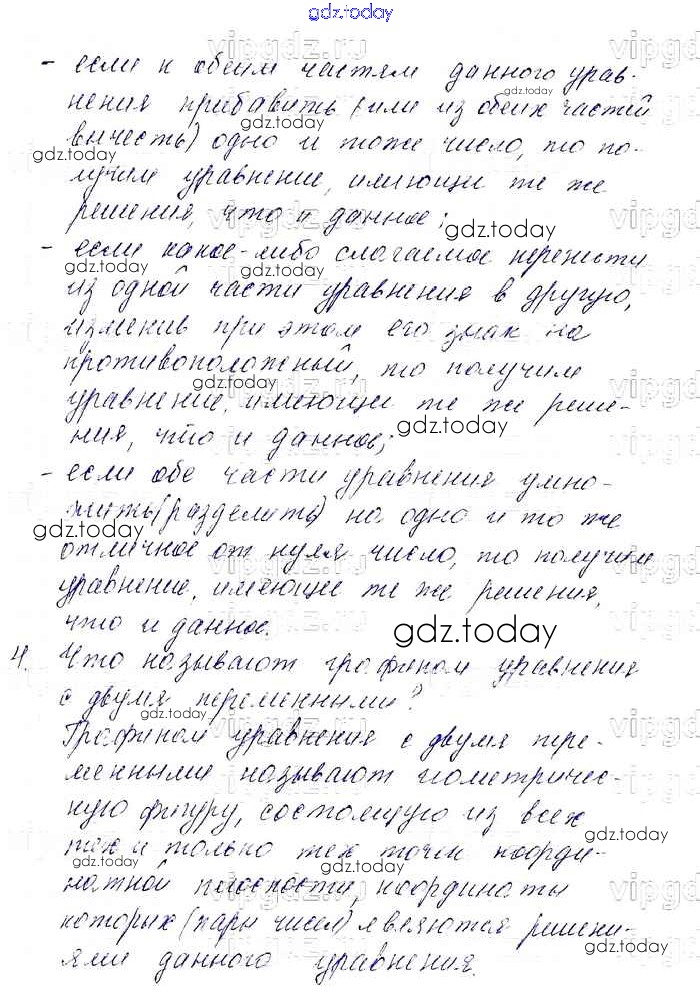 gdz.today
- если к обеим частям данного урав-
нения прибавить (или из обеих частей
вычесть) одно и тоже число, то по-
лучим уравнение, имеющи те же
решения, что и данное;
- если какое-либо слагаемое перенести
из одной части уравнения в другую,
изменив при этом его знак на
противоположеный, то получим
уравнение, имеющи те же реше-
ния, что и данное;
- если обе части уравнения умно-
жить (разделить) на одно и то же
отличное от нуля число, то получим
уравнение, имеющее те же решения,
что и данное.
4. Что называют графиком уравнения
с двумя переменными?
Графиком уравнения с двумя пере-
менными называют геометричес-
кую фигуру, состоящую из всех
тех и только тех точек коорди-
натной плоскости, координаты
которых (пары чисел) являются решени-
ями данного уравнения.